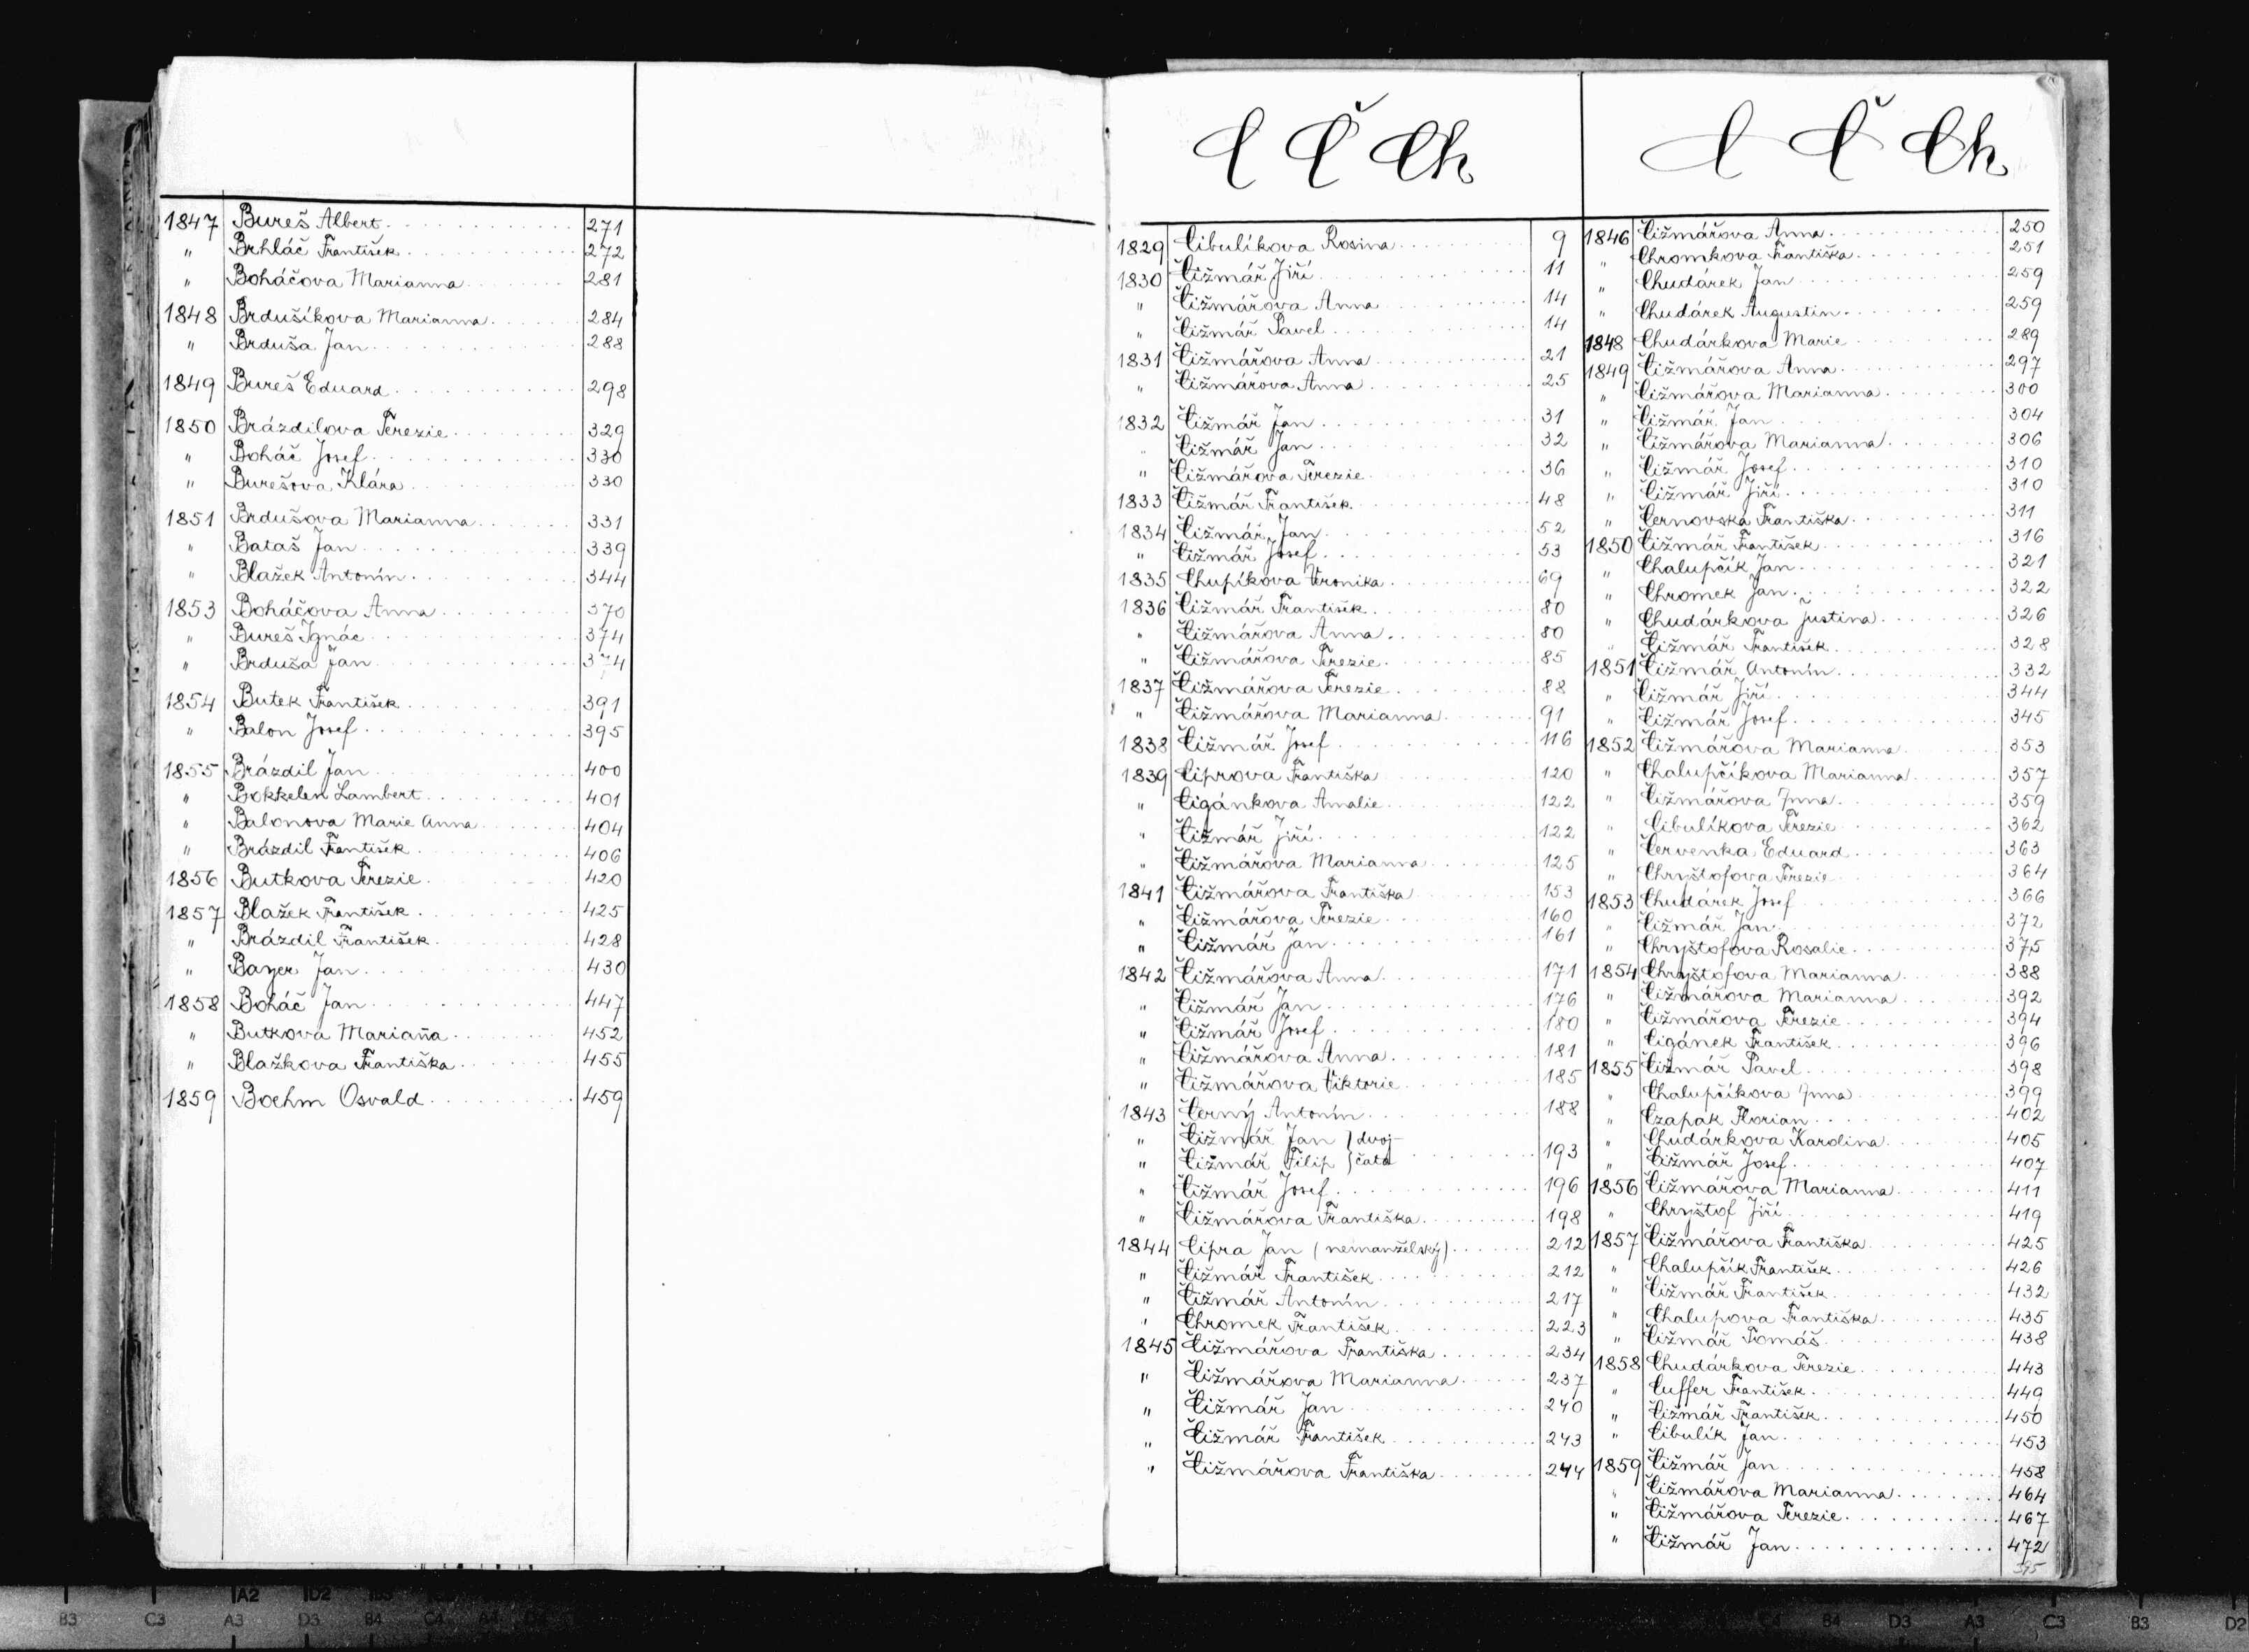 1847 Bureš Albert 271
" Brhláč František 272
" Boháčova Marianna 281
1848 Brdušíkova Marianna 284
" Brduša Jan 288
1849 Bureš Eduard 298
1850 Brázdilova Terezie 329
" Boháč Josef 330
" Burešova Klára 330
1851 Brdušova Marianna 331
" Bataš Jan 339
" Blažek Antonín 344
1853 Boháčova Anna 370
" Bureš Ignác 374
" Brduša Jan 374
1854 Butek František 391
" Balon Josef 395
1855 Brázdil Jan 400
" Bokkelen Lambert 401
" Balonova Marie Anna 404
" Brázdil František 406
1856 Butkova Terezie 420
1857 Blažek František 425
" Brázdil František 428
" Bayer Jan 430
1858 Boháč Jan 447
" Butkova Mariaňa 452
" Blažkova Františka 455
1859 Boehm Osvald 459
C Č Ch
1829 Cibulíkova Rosina 9
1830 Čižmář Jiří 11
" Čižmářova Anna 14
" Čižmář Pavel 14
1831 Čižmářova Anna 21
" Čižmářova Anna 25
1832 Čižmář Jan 31
" Čižmář Jan 32
" Čižmářova Terezie 36
1833 Čižmář František 48
1834 Čižmář Jan 52
" Čižmář Josef 53
1835 Chupíkova Veronika 69
1836 Čižmář František 80
" Čižmářova Anna 80
" Čižmářova Terezie 85
1837 Čižmářova Terezie 88
" Čižmářova Marianna 91
1838 Čižmář Josef 116
1839 Ciprova Františka 120
" Cigánkova Amalie 122
" Čižmář Jiří 122
" Čižmářova Marianna 125
1841 Čižmářova Františka 153
" Čižmářova Terezie 160
" Čižmář Jan 161
1842 Čižmářova Anna 171
" Čižmář Jan 176
" Čižmář Josef 180
" Čižmářova Anna 181
" Čižmářova Viktorie 185
1843 Černý Antonín 188
" Čižmář Jan } dvoj-
" Čižmář Filip } čata 193
" Čižmář Josef 196
" Čižmářova Františka 198
1844 Cipra Jan (nemanželský) 212
" Čižmář František 212
" Čižmář Antonín 217
" Chromek František 223
1845 Čižmářova Františka 234
" Čižmářova Marianna 237
" Čižmář Jan 240
" Čižmář František 243
" Čižmářova Františka 244
C Č Ch
1846 Čižmářova Anna 250
" Chromkova Františka 251
" Chudárek Jan 259
" Chudárek Augustin 259
1848 Chudárkova Marie 289
1849 Čižmářova Anna 297
" Čižmářova Marianna 300
" Čižmář Jan 304
" Čižmářova Marianna 306
" Čižmář Josef 310
" Čižmář Jiří 310
" Černovska Františka 311
1850 Čižmář František 316
" Chalupčík Jan 321
" Chromek Jan 322
" Chudárkova Justina 326
" Čižmář František 328
1851 Čižmář Antonín 332
" Čižmář Jiří 344
" Čižmář Josef 345
1852 Čižmářova Marianna 353
" Chalupčíkova Marianna 357
" Čižmářova Anna 359
" Cibulíkova Terezie 362
" Červenka Eduard 363
" Chryštofova Terezie 364
1853 Chudárek Josef 366
" Čižmář Jan 372
" Chryštofova Rosalie 375
1854 Chryštofova Marianna 388
" Čižmářova Marianna 392
" Čižmářova Terezie 394
" Cigánek František 396
1855 Čižmář Pavel 398
" Chalupčíkova Anna 399
" Czapak Florian 402
" Chudárkova Karolina 405
" Čižmář Josef 407
1856 Čižmářova Marianna 411
" Chryštof Jiří 419
1857 Čižmářova Františka 425
" Chalupčík František 426
" Čižmář František 432
" Chalupova Františka 435
" Čižmář Tomáš 438
1858 Chudárkova Terezie 443
" Cuffer František 449
" Čižmář František 450
" Cibulík Jan 453
1859 Čižmář Jan 458
" Čižmářova Marianna 464
" Čižmářova Terezie 467
" Čižmář Jan 472
B3 C3 A2 A3 D2 D3 B4 C4
B4 D3 A3 C3 B3 D2